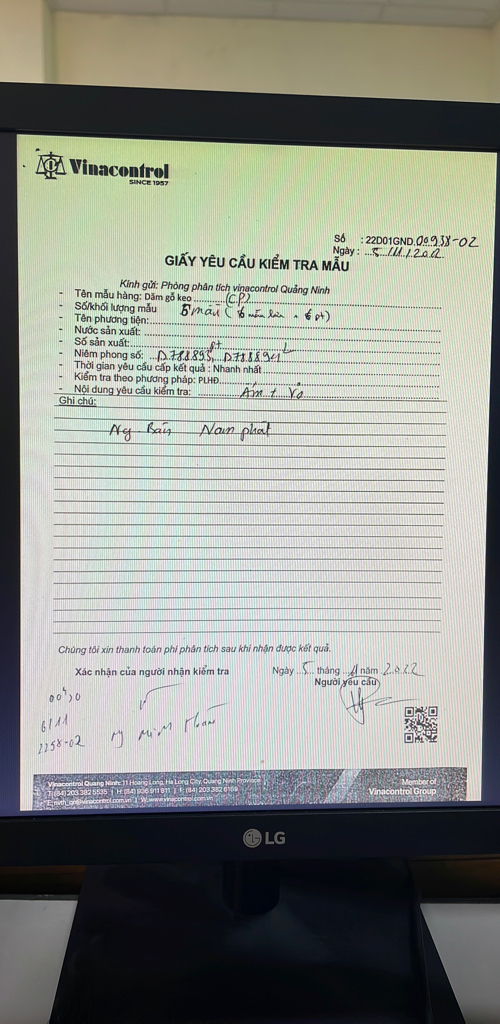 Vinacontrol
SINCE 1957
Số : 22D01GND.00938-02
Ngày : 5/11/2022
GIẤY YÊU CẦU KIỂM TRA MẪU
Kính gửi: Phòng phân tích vinacontrol Quảng Ninh
- Tên mẫu hàng: Dăm gỗ keo (CP)
- Số/khối lượng mẫu 5 mẫu
- Tên phương tiện:
- Nước sản xuất:
- Số sản xuất:
- Niêm phong số: D788895, D7888941
- Thời gian yêu cầu cấp kết quả : Nhanh nhất
- Kiểm tra theo phương pháp: PLHĐ
- Nội dung yêu cầu kiểm tra: Ẩm + Vỏ
Ghi chú:
Ng Bán Nam phát
Chúng tôi xin thanh toán phí phân tích sau khi nhận được kết quả.
Xác nhận của người nhận kiểm tra
Ngày 5 tháng 11 năm 2022
Người yêu cầu
00h30
6/11
2258-02
Vinacontrol Quảng Ninh: 11 Hoang Long, Ha Long City, Quang Ninh Province
T:(84) 203 382 5535 | H: (84) 936 911 811 | F: (84) 203 382 6169
W: www.vinacontrol.com.vn
Member of
Vinacontrol Group
LG